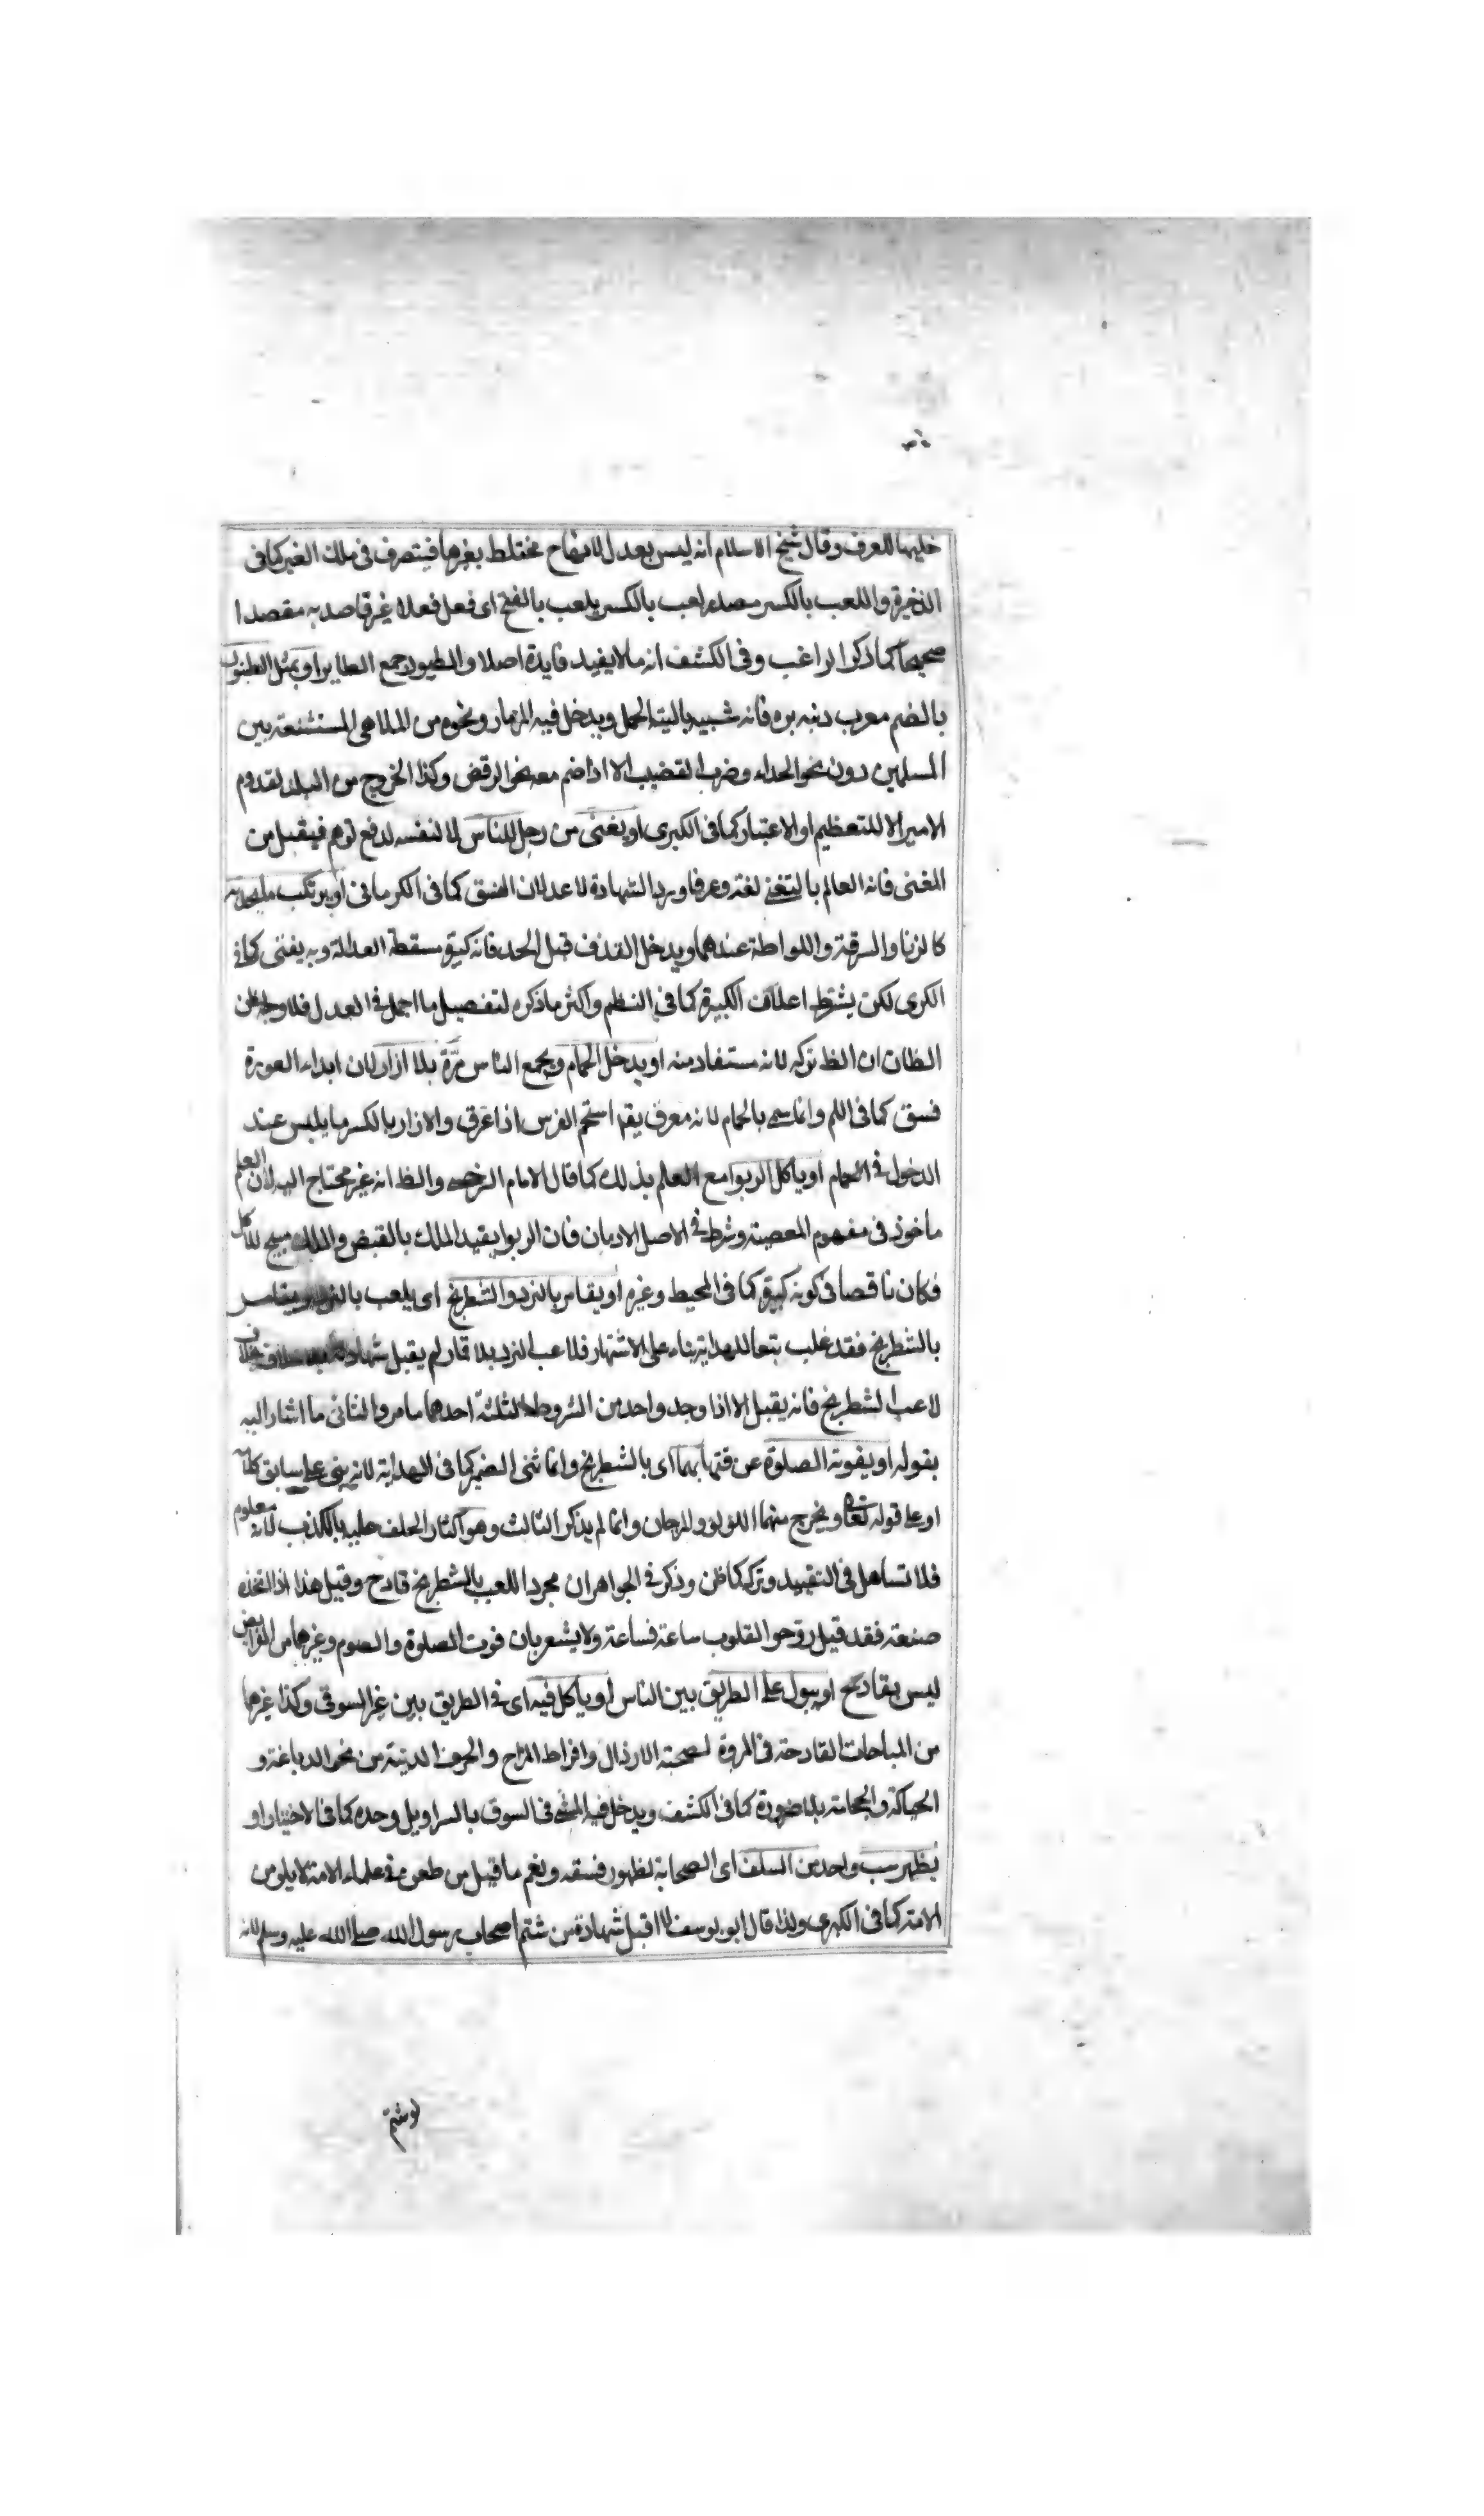 خليها للعرف وقال شيخ الاسلام انه ليس بعدل لانها ح تختلط بغيرها فيتصرف فى ملك الغير كما فى
الذخيرة واللعب بالكسر مصدر لعب بالكسر يلعب بالفتح اى فعل فعلا غير قاصد به مقصدا
صحيحا كما ذكر الراغب وفى الكشف انه ما لا يفيد فايدة اصلا والطيور جمع الطاير او بمثل الطنبور
بالضم معرب دنبه بره فانه شبيه بالية الحمل ويدخل فيه المزمار ونحوه من الملاهى المستشنعة بين
المسلمين دون نحو الحداء وضرب القضيب الا اذا ضم معه نحو الرقص وكذا الخروج من البلد لقدوم
الامير الا للتعظيم او الاعتبار كما فى الكبرى او يغنى من رجل للناس لا لنفسه لدفع توهم فيقبل من
المغنى فانه العالم بالتغنى لغة وعرفا ويرد الشهادة لاعلان الفسق كما فى الكرمانى او يرتكب ما يحد به
كالزنا والسرقة واللواطة عندهما ويدخل القذف قبل الحد فانه كبيرة مسقطة العدالة وبه يفتى كما فى
الكبرى لكن يشترط اعلان الكبيرة كما فى النظم واكثر ما ذكره لتفصيل ما اجمل فى العدل فلا وجه لظن
الظان ان الظ تركه لانه مستفاد منه او يدخل الحمام ويجمع الناس مرة بلا ازار لان ابداء العورة
فسق كما فى اللم وانما سمى بالحمام لانه معرق يقم استحم الفرس اذا عرق والازار بالكسر ما يلبس عند
الدخول فى الحمام او ياكل الربوا مع العلم بذلك كما قال الامام السرخسى والظ انه غير محتاج اليه لان العلم
مأخوذ فى مفهوم المعصية وشرط فى الاصل الادمان فان الربوا يفيد الملك بالقبض والملك مبيح للاكل
فكان ناقصا فى كونه كبيرة كما فى المحيط وغيره او يقامر بالنرد والشطرنج اى يلعب بالنرد او يقامر
بالشطرنج فقد غلب تبعا للهداية بناء على الاشتهار فلاعب النرد بلا قمار لم يقبل شهادته
لاعب الشطرنج فانه يقبل الا اذا وجد واحد من الشروط الثلثة احدهما ما مر والثانى ما اشار اليه
بقوله او يفوته الصلوة عن وقتها بهما اى بالشطرنج وانما ثنى الضمير كما فى الهداية لانه بنى على سابق كلامه
او على قوله تعالى يخرج منهما اللؤلؤ والمرجان وانما لم يذكر الثالث وهو اكثار الحلف عليه بالكذب لانه معلوم
فلا تساهل فى التقييد وتركه كما ظن وذكر فى الجواهر ان مجرد اللعب بالشطرنج قادح وقيل هذا اذا اتخذه
صنعة فقد قيل روّحوا القلوب ساعة فساعة ولا يشعر بان فوت الصلوة والصوم وغيرهما من الفرايض
ليس بقادح او يبول على الطريق بين الناس او ياكل فيه اى فى الطريق بين غير السوقى وكذا غيرها
من المباحات القادحة فى المروة لصحبة الارذال وافراط المزاح والحرف الدنية من نحو الدباغة و
الحياكة والحجامة بلا ضرورة كما فى الكشف ويدخل فيه المشى فى السوق بالسراويل وحده كما فى الاختيار او
يظهر سب واحد من السلف اى الصحابة لظهور فسقه ونعم ما قيل من طعن فى علماء الامة لا يلومن
الا امه كما فى الكبرى ولذا قال ابو يوسف لا اقبل شهادة من شتم اصحاب رسول الله صلى الله عليه وسلم لانه
لو شتم